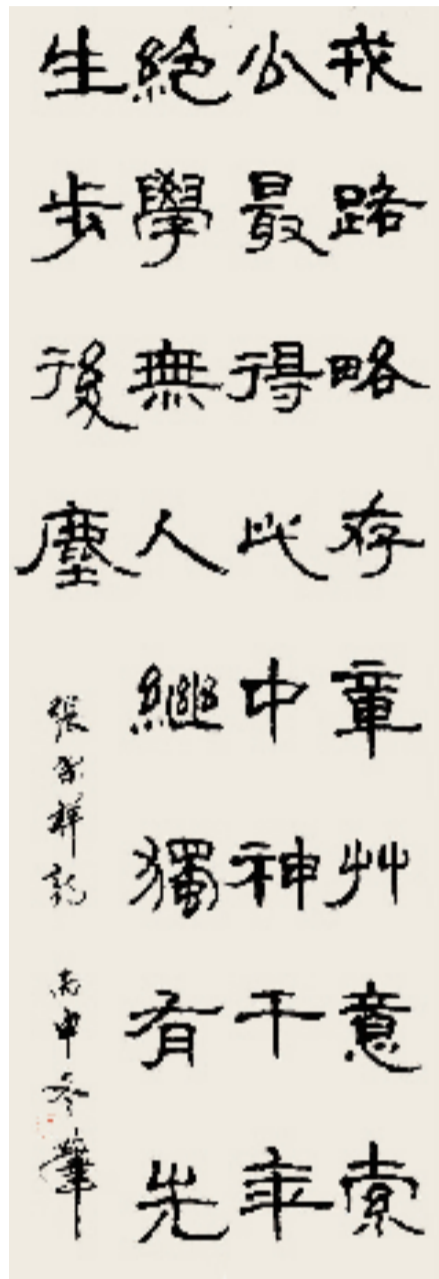 戎路略存章艸意索
公最得此中神千年
絕學無人繼獨有先
生步後塵
張祥 丙申冬